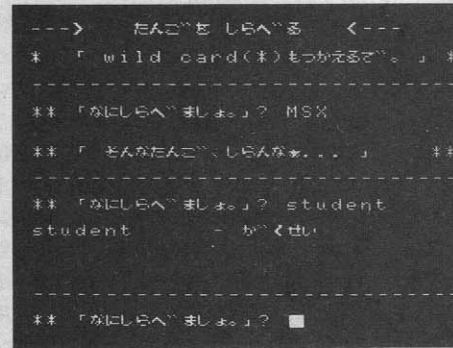 ---> たんご゛を しらべ゛る <---
* 「 wild card(*)もつかえるぞ゛。 」 *
** 「なにしらべ゛ましょ。」? MSX
** 「 そんなたんご゛、しらんなぁ... 」 **
** 「なにしらべ゛ましょ。」? student
student - か゛くせい
** 「なにしらべ゛ましょ。」?